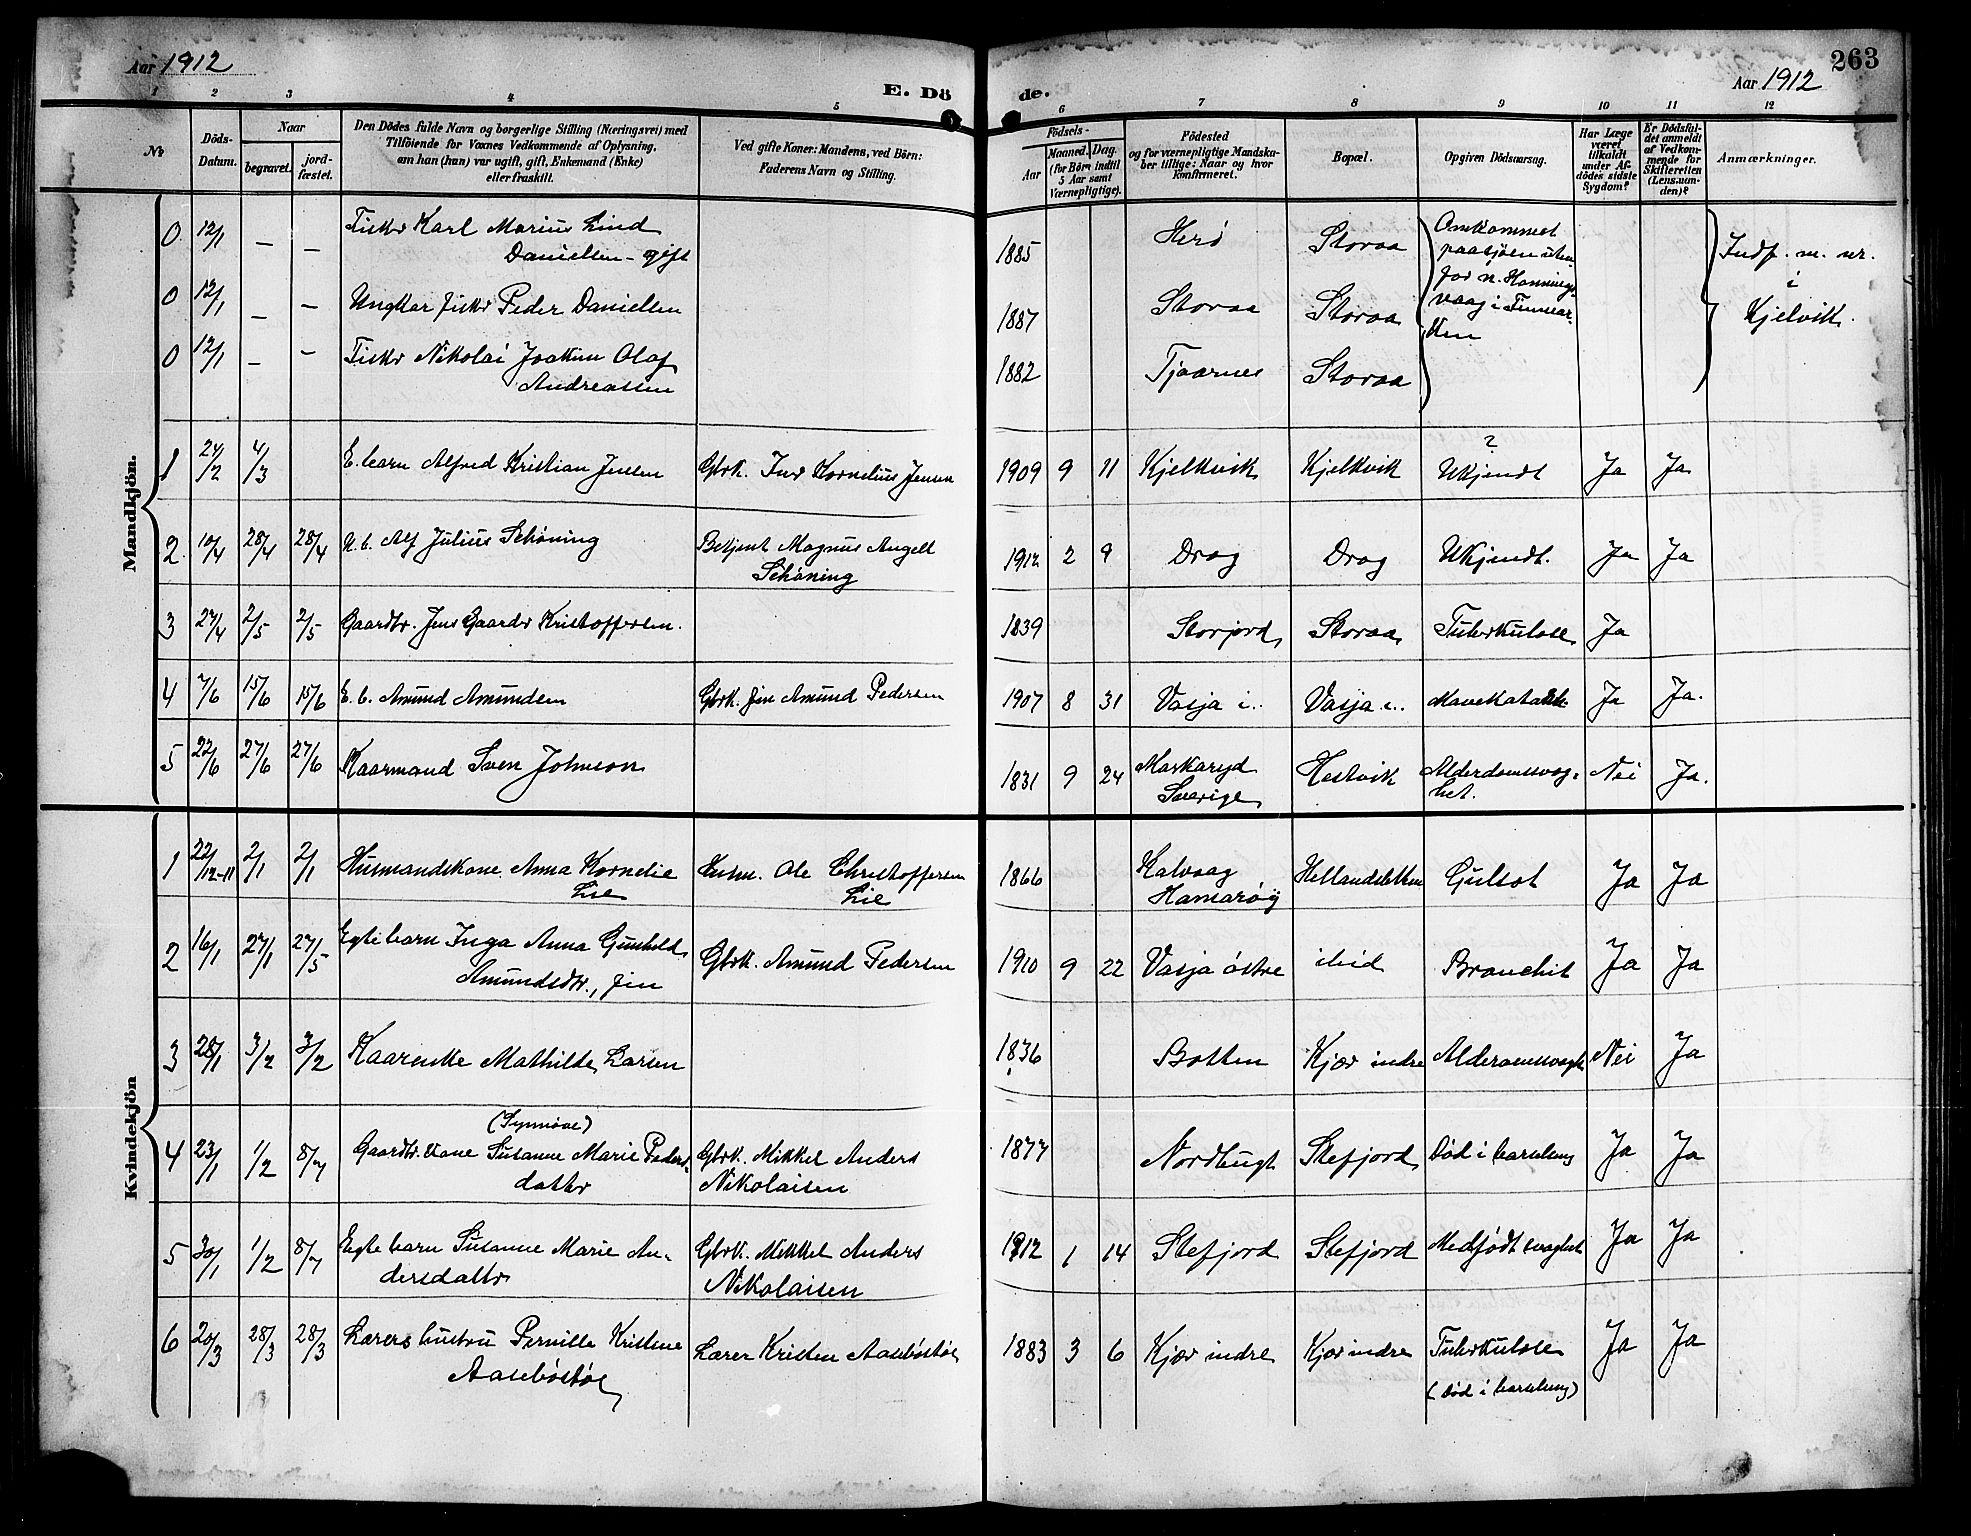 263
Aar 1912
E. Dö
de.
Aar 1912
1 2 3 4 5 6 7 8 9 10 11 12
No
Döds-
Datum.
Naar
begravet.
jord-
fæstet.
Den Dödes fulde Navn og borgerlige Stilling (Næringsvei) med
Tilföiende for Voxnes Vedkommende af Oplysning,
om han (hun) var ugift, gift, Enkemand (Enke)
eller fraskilt.
Ved gifte Koner: Mandens, ved Börn:
Faderens Navn og Stilling.
Födsels-
Aar
Maaned. Dag.
(for Börn indtil
5 Aar samt
Værnepligtige).
Födested
og for værnepligtige Mandska-
ber tillige: Naar og hvor
konfirmeret.
Bopæl.
Opgiven Dödsaarsag.
Har Læge
været
tilkaldt
under Af-
dödes sidste
Sygdom?
Er Dödsfal-
det anmeldt
af Vedkom-
mende for
Skifteretten
(Lensman-
den)?
Anmærkninger.
Mandkjön.
0 12/1 — — Fisker Karl Marius Lind
Daniellen - gift
1885 Herö Storaa
Omkommet
paa sjöen uten
for n. Honnings-
vaag i Finmar-
ken
Indf. m. nr.
i
Kjelvik.
0 12/1 — — Ungkar fisker Peder Daniellen 1887 Storaa Storaa
0 12/1 — — Fisker Nikolai Joakim Olaf
Andreassen
1882 Tjaarnes Storaa
1 24/2 4/3 E. barn Alfred Kristian Jensen Gbrk. Kornelius Jensen 1909 9 11 Kjelkvik Kjelkvik ? Ukjendt Ja Ja
2 10/4 28/4 28/4 U. b. Alf Julius Schöning Betjent Magnus Angell
Schöning
1912 2 9 Drag Drag Ukjendt. Ja Ja
3 27/4 2/5 2/5 Gaardbr. Jens Gaarder Kristoffersen. 1839 Storjord Storaa Tuberkulose Ja
4 7/6 15/6 15/6 E. b. Amund Amundsen Gbrk. fin Amund Pedersen 1907 8 31 Vasja i.. Vasja i.. Mavekatarrh. Ja Ja.
5 22/6 27/6 27/6 Kaarmand Sven Johnson 1831 9 24 Markaryd
Sverige
Hestvik Alderdomssvag-
het.
Nei Ja.
Kvindekjön
1 22/12-11 2/1 2/1 Husmandskone Anna Kornelie
Lie
Husm. Ole Christoffersen
Lie
1866 Kalvaag
Hamaröy
Gulsot Ja Ja
2 16/1 27/1 27/5 Egtebarn Inga Anna Gunhild
Amundsdtr., fin
Gbrk. Amund Pedersen 1910 9 22 Vasja östre ibid Bronchit Ja Ja
3 28/1 3/2 3/2 Kaarenke Mathilde Larsen 1836 Botten Kjær indre Alderdomssvagh. Nei Ja
4 23/1 1/2 8/7 (Synnöve)
Gaardbr. kone Susanne Marie Peders-
datter
Gbrk. Mikkel Anders
Nikolaisen
1877 Nordbugt Stefjord Död i barselseng Ja Ja
5 30/1 1/2 8/7 Egte barn Susanne Marie An-
dersdatter
Gbrk. Mikkel Anders
Nikolaisen
1912 1 14 Stefjord Stefjord Medfödt svaghet Ja Ja
6 20/3 28/3 28/3 Lærers hustru Pernille Kristine
Aasebøstøl
Lærer Kristen Aasebøstøl 1883 3 6 Kjær indre Kjær indre Tuberkulose
(död i barselseng)
Ja Ja